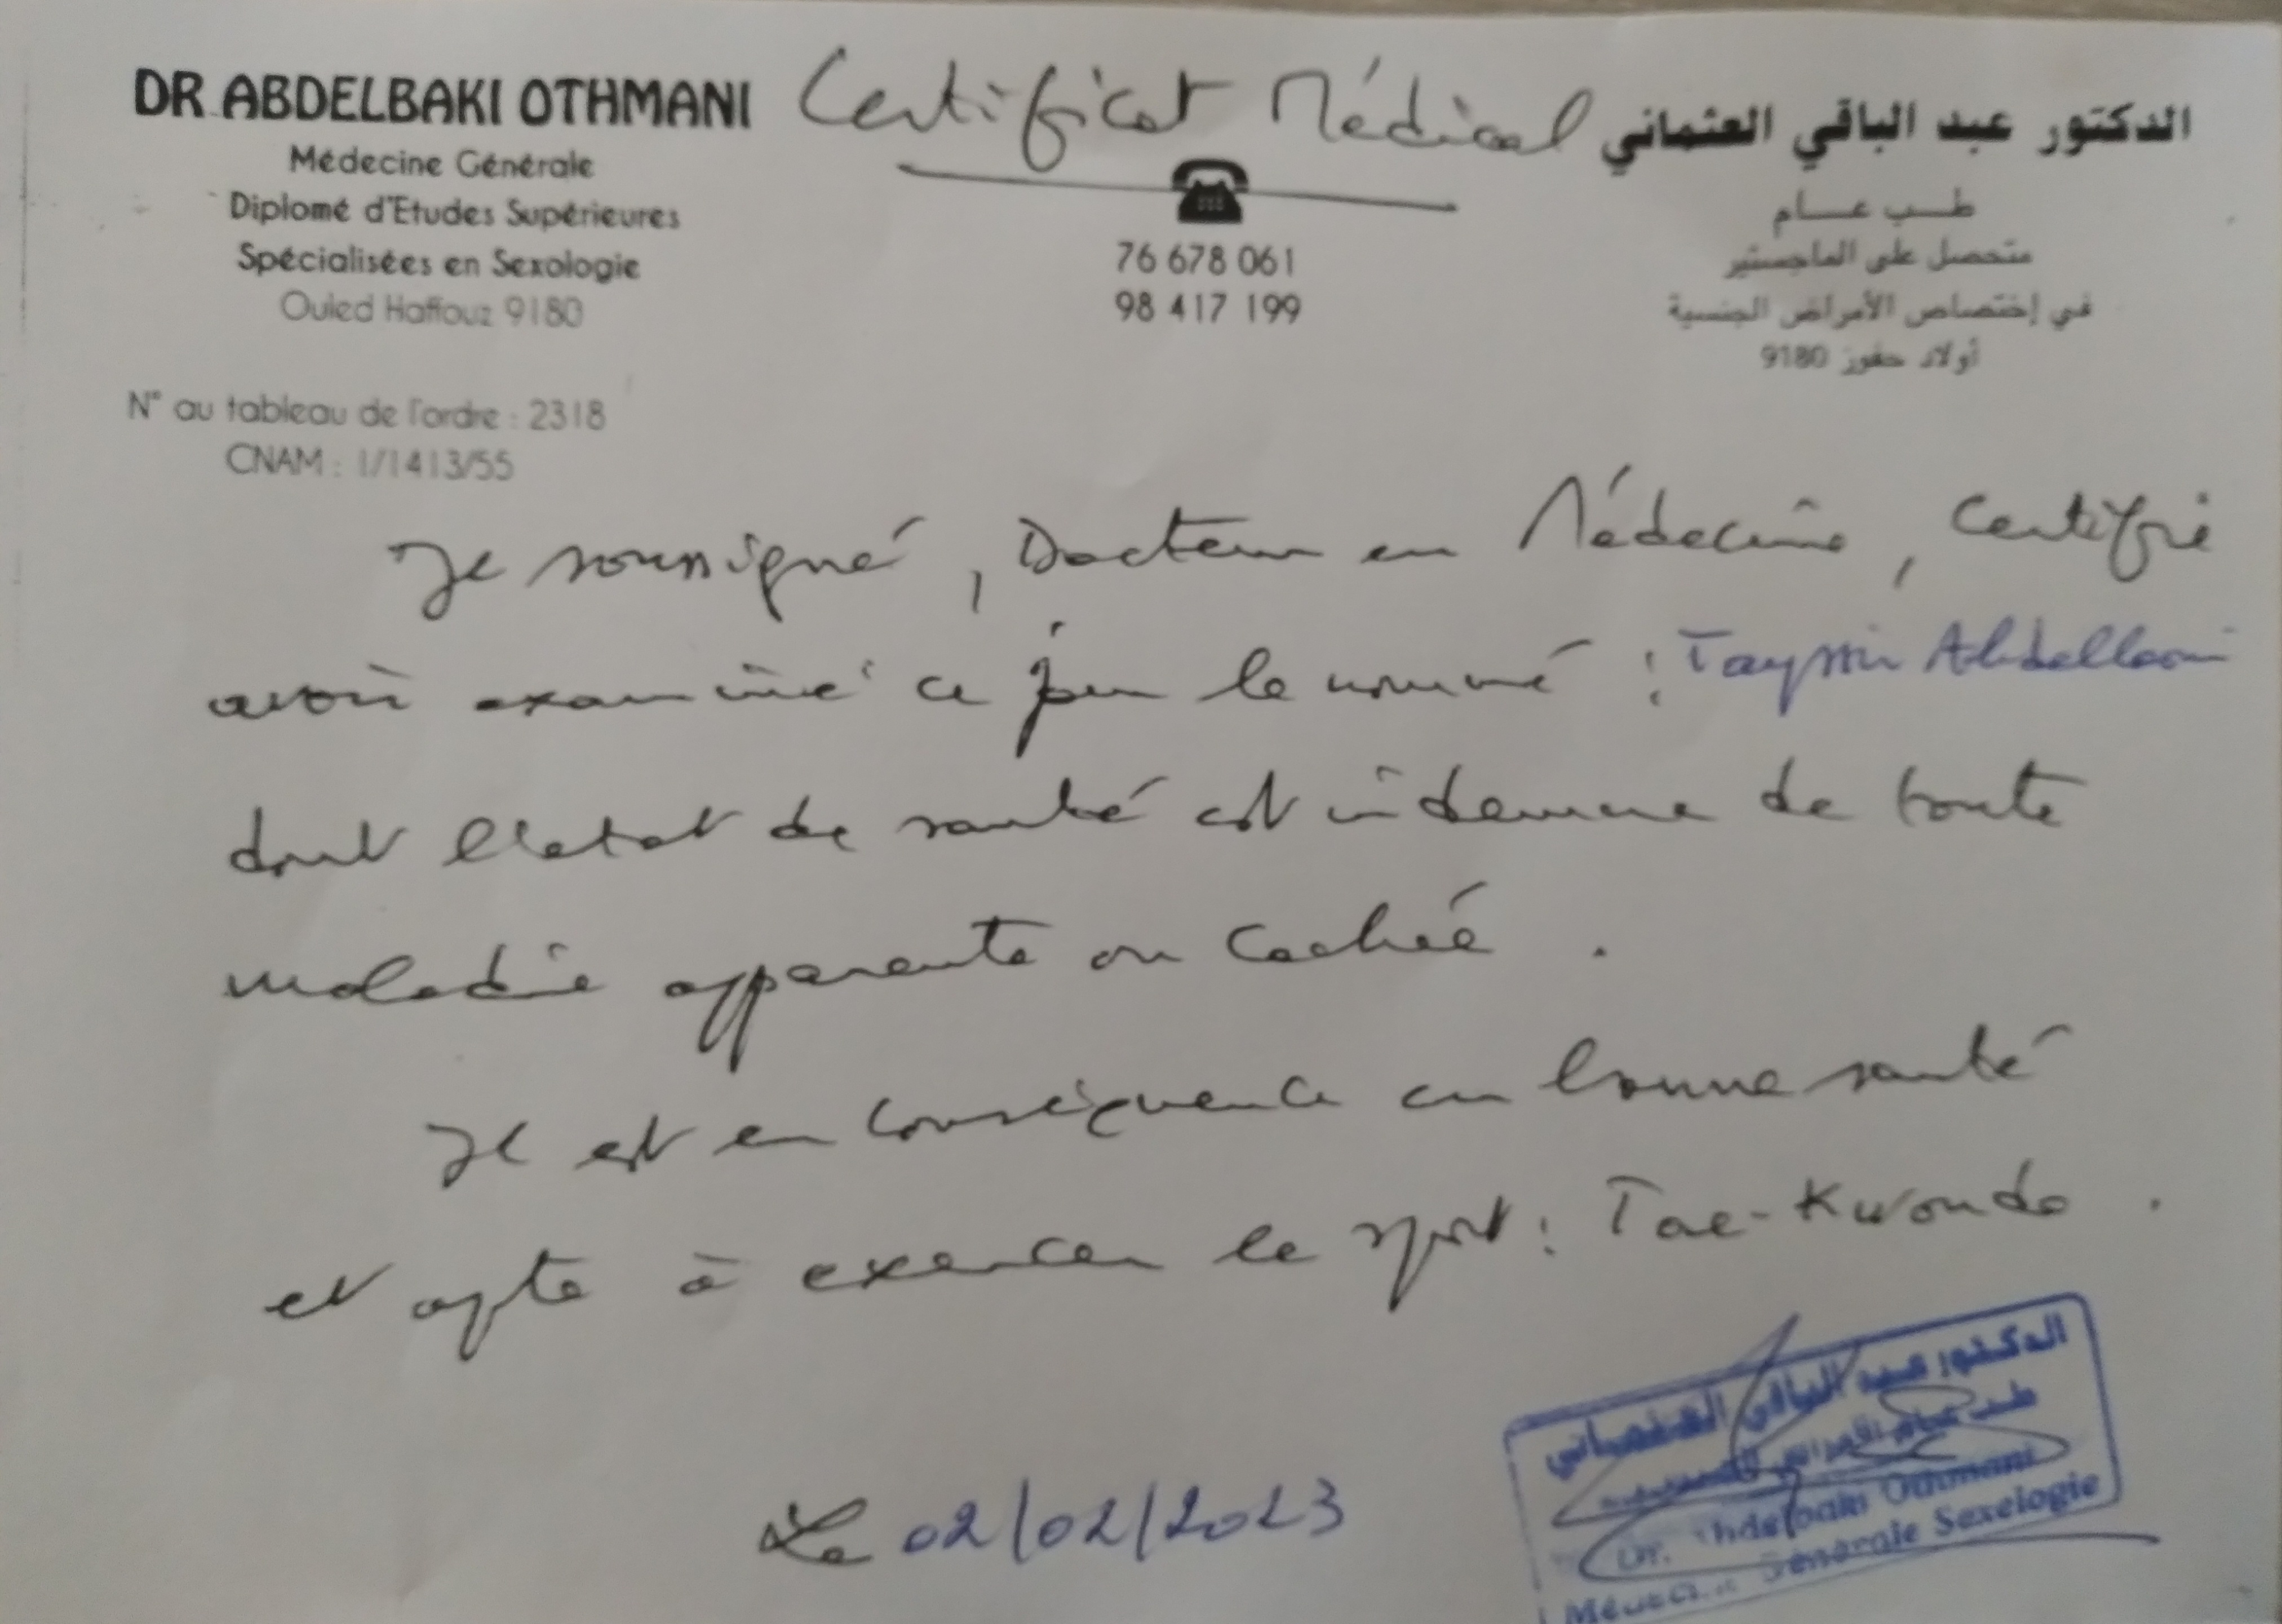 DR ABDELBAKI OTHMANI
Médecine Générale
Diplomé d'Etudes Supérieures
Spécialisées en Sexologie
Ouled Haffouz 9180
N° au tableau de l'ordre : 2318
CNAM : 1/1413/55
Certificat Médical
76 678 061
98 417 199
الدكتور عبد الباقي العثماني
طب عام
متحصل على الماجستير
في إختصاص الأمراض الجنسية
أولاد حفوز 9180
Je soussigné, Docteur en Médecine, certifie
avoir examiné ce jour le nommé : Tayssir Abdellaoui
dont l'etat de santé est indemne de toute
maladie apparente ou cachée .
Il est en conséquence en bonne santé
et apte à exercer le sport : Tae-Kwondo .
Le 02/02/2023
الدكتور عبد الباقي العثماني
طب عام الأمراض الجنسية
Dr. Abdelbaki Othmani
Médecine Générale Sexelogie